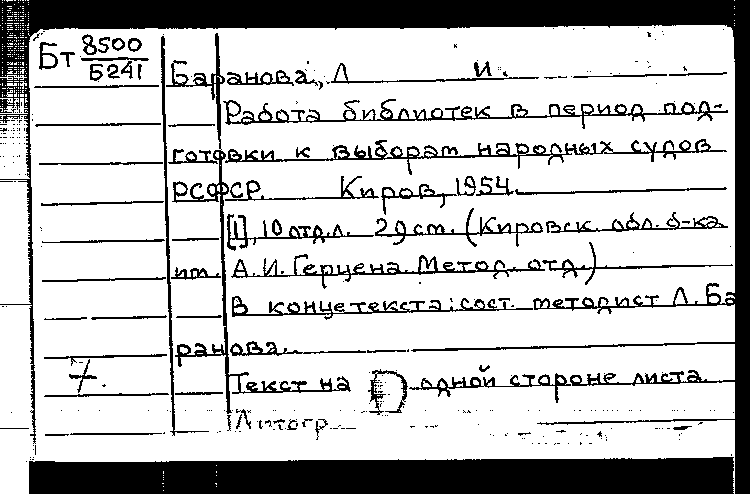 Бт 8500
Б241
Баранова, Л И.
Работа библиотек в период под-
готовки к выборам народных судов
РСФСР. Киров, 1954.
[1], 10 отд.л. 29 см. (Кировск. обл. б-ка
им. А.И. Герцена. Метод. отд.)
В конце текста: сост. методист Л. Ба
ранова.
Текст на одной стороне листа.
Литогр
7.